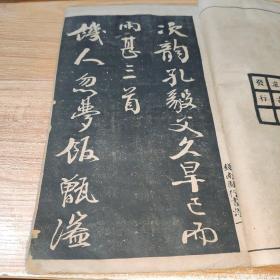 次韵孔毅父久旱已而
雨甚三首
饑人忽夢飯甑溢